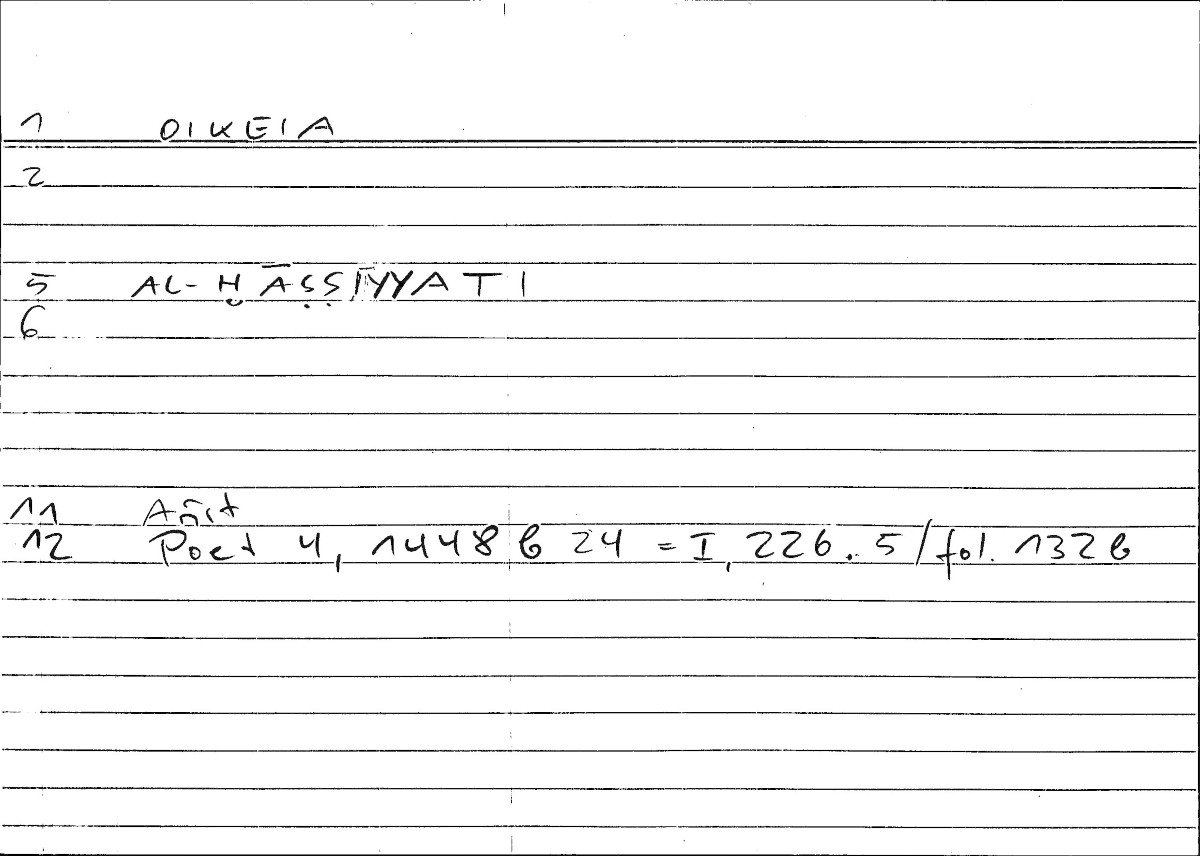 1 OIKEIA
2
5 AL-ḪĀṢṢIYYATI
6
11 Arist
12 Poet 4, 1448 b 24 = I, 226.5/fol. 132 b